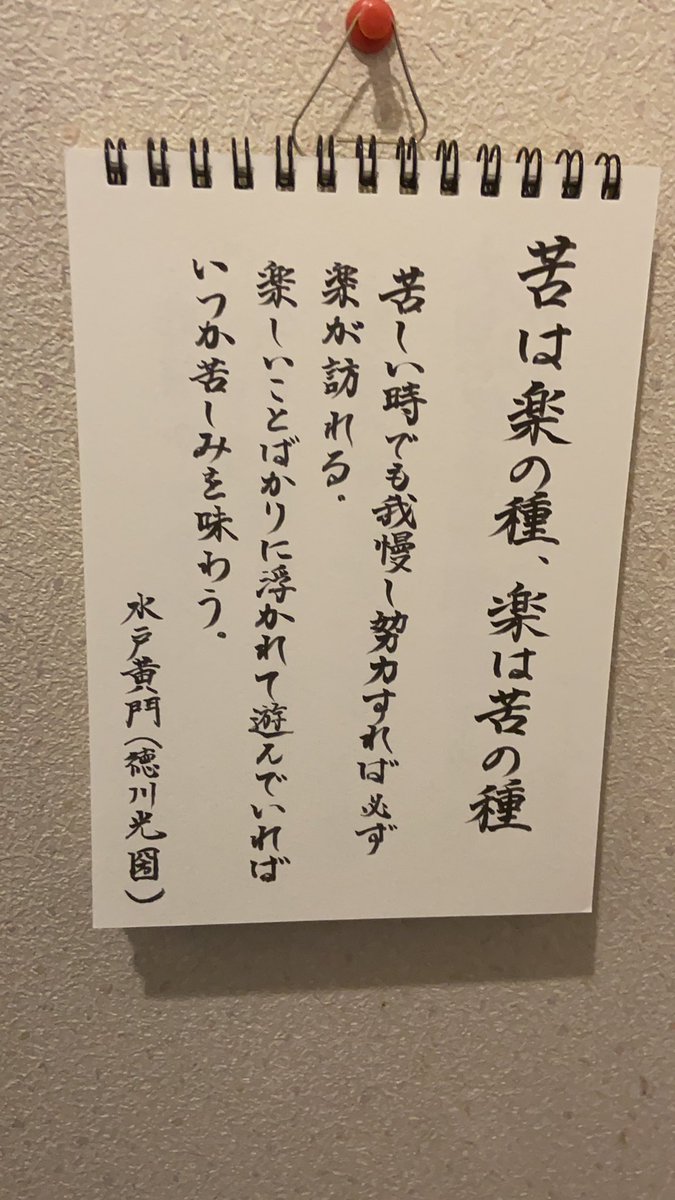 苦は楽の種、楽は苦の種
苦しい時でも我慢し努力すれば必ず
楽が訪れる.
楽しいことばかりに浮かれて遊んでいれば
いつか苦しみを味わう.
水戸黄門(徳川光圀)